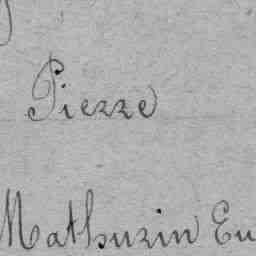 Pierre
Mathurin Eu